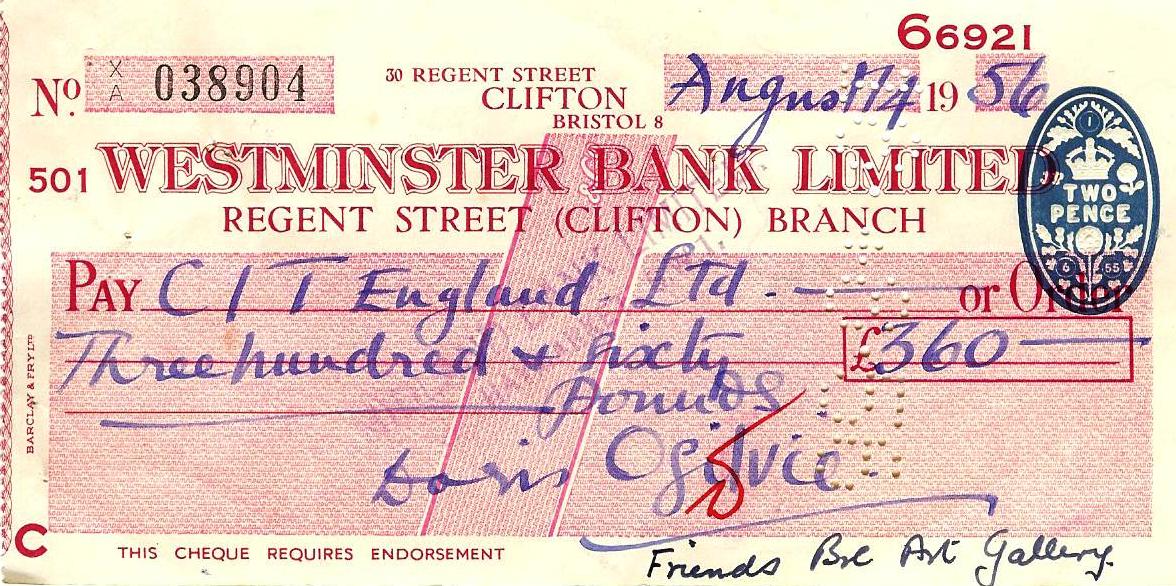 66921
No. X/A 038904
30 REGENT STREET
CLIFTON
BRISTOL 8
August 14 1956
501 WESTMINSTER BANK LIMITED
REGENT STREET (CLIFTON) BRANCH
TWO
PENCE
6 55
PAY C I T England Ltd. or Order
Three hundred & sixty £360
Pounds
Doris Ogilvie
BARCLAY & FRY LTD
C THIS CHEQUE REQUIRES ENDORSEMENT
Friends Bre Art Gallery.